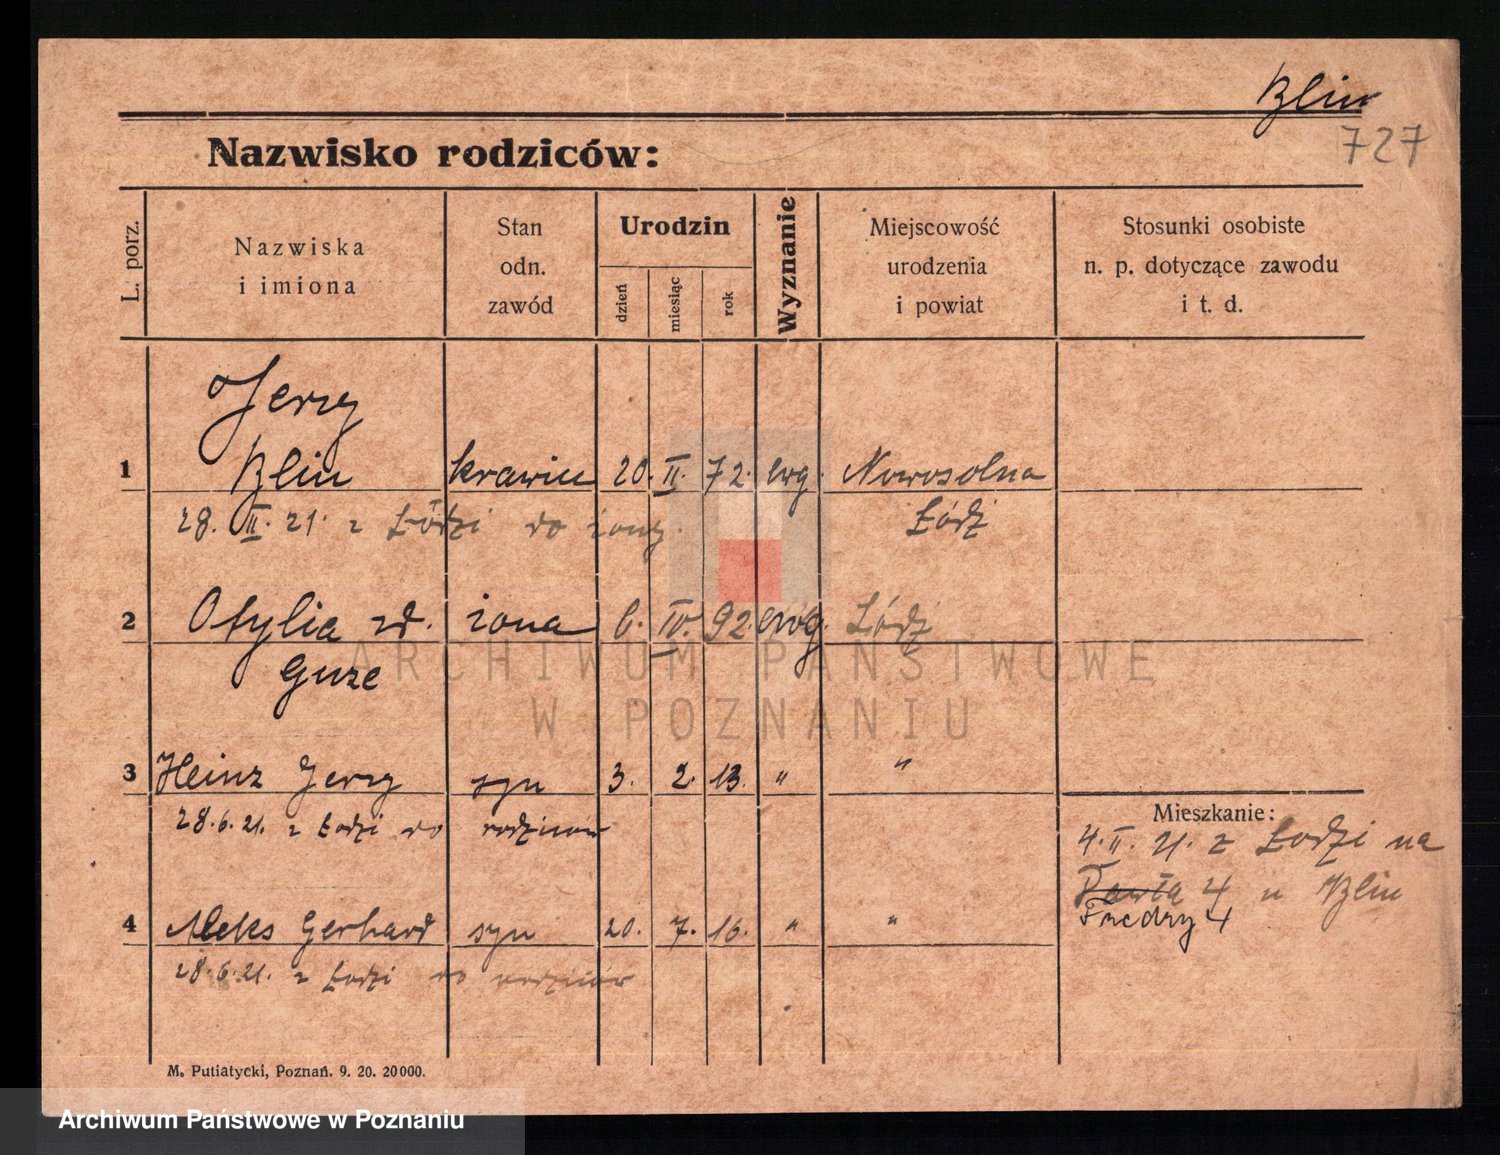 Blin
727
Nazwisko rodziców:
L. porz.
Nazwiska
i imiona
Stan
odn.
zawód
Urodzin
dzień
miesiąc
rok
Wyznanie
Miejscowość
urodzenia
i powiat
Stosunki osobiste
n. p. dotyczące zawodu
i t. d.
Jerzy
1 Blin krawiec 20. II. 72. ewg. Nowosolna
28. II. 21. z Łodzi do żony. Łódź
2 Otylia zd. żona 6. IV. 92 ewg. Łódź
Guze
3 Heinz Jerzy syn 3. 2. 13. " "
28.6.21. z Łodzi do rodziców
Mieszkanie:
4. II. 21. z Łodzi na
4 u Blin
Fredry 4
4 Aleks Gerhard syn 20. 7. 16. " "
28.6.21. z Łodzi do rodziców
M. Putiatycki, Poznań. 9. 20. 20000.
ARCHIWUM PAŃSTWOWE
W POZNANIU
Archiwum Państwowe w Poznaniu